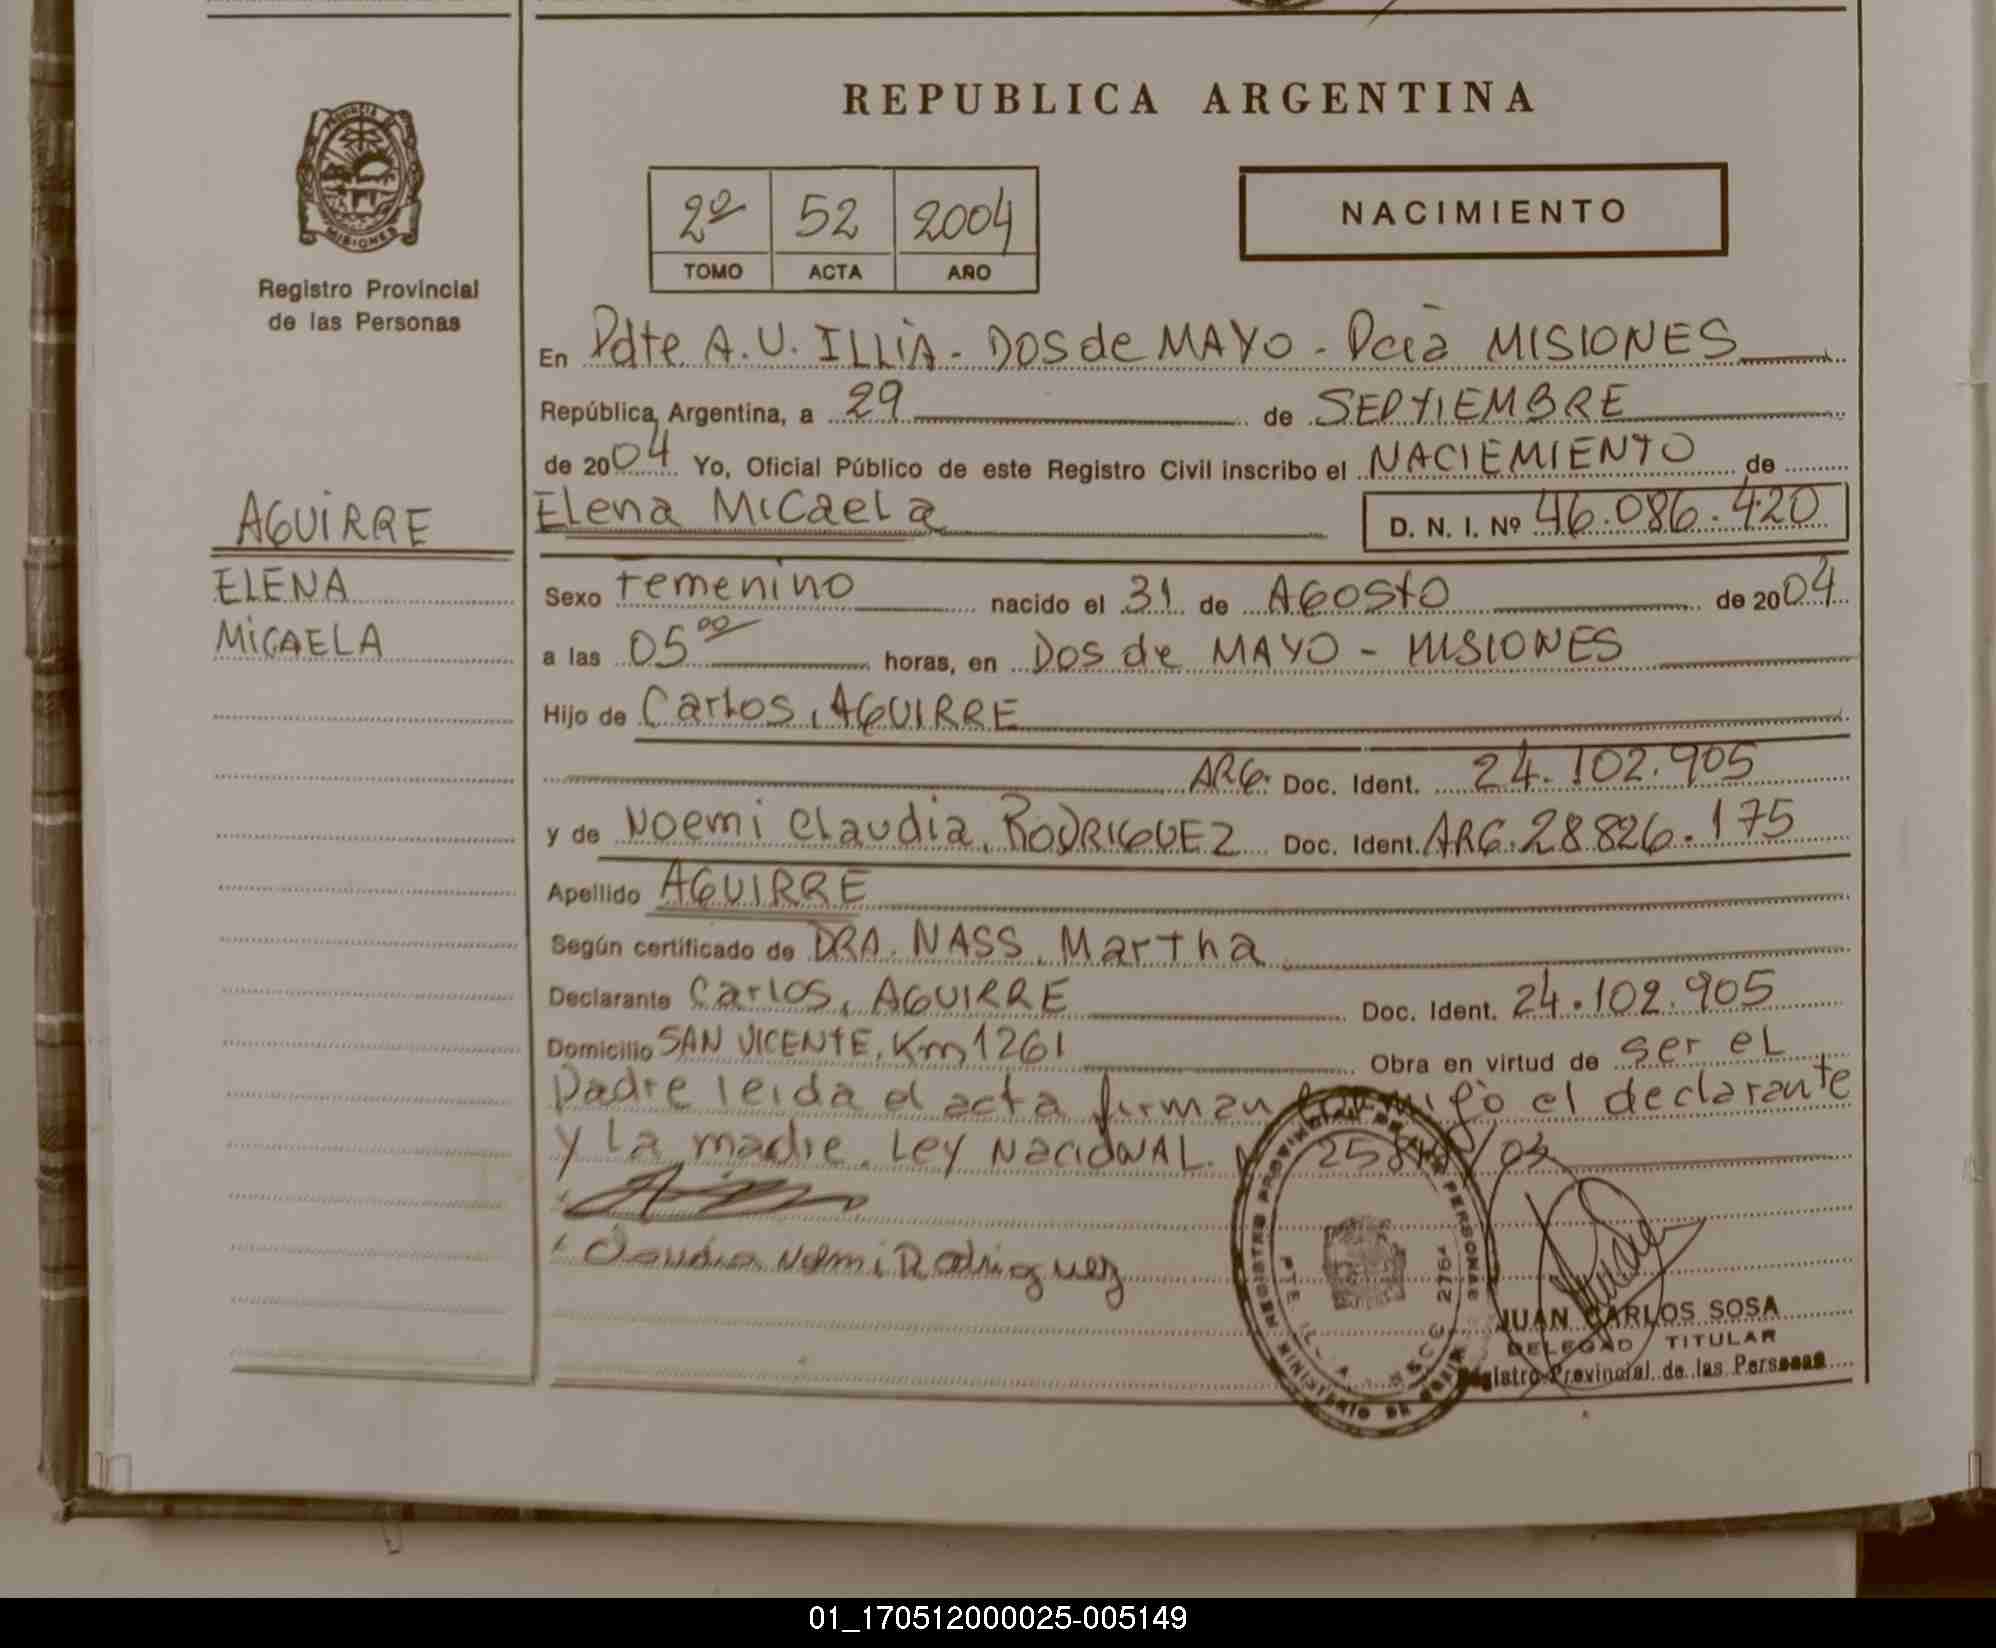 REPUBLICA ARGENTINA
PROVINCIA DE
MISIONES
Registro Provincial
de las Personas
2º 52 2004
TOMO ACTA AÑO
NACIMIENTO
En Pdte A.U. ILLIA - DOS de MAYO - Pcia MISIONES
República Argentina, a 29 de SEPTIEMBRE
de 2004 Yo, Oficial Público de este Registro Civil inscribo el NACIEMIENTO de
AGUIRRE
ELENA
MICAELA
Elena Micaela D. N. I. Nº 46.086.420
Sexo Femenino nacido el 31 de AGOSTO de 2004
a las 05 00 horas, en DOS de MAYO - MISIONES
Hijo de Carlos, AGUIRRE
ARG. Doc. Ident. 24.102.905
y de Noemi Claudia, RODRIGUEZ Doc. Ident. ARG. 28.826.175
Apellido AGUIRRE
Según certificado de DRA. NASS, Martha
Declarante Carlos, AGUIRRE Doc. Ident. 24.102.905
Domicilio SAN VICENTE, Km 1261 Obra en virtud de ser el
Padre leida el acta firman conmigo el declarante
y La madre. Ley NacioNAL /03
Claudia Noemi Rodriguez
REGISTRO PROVINCIAL DE LAS PERSONAS
MINISTERIO DE
2761
JUAN CARLOS SOSA
DELEGADO TITULAR
Registro Provincial de las Personas
01_170512000025-005149